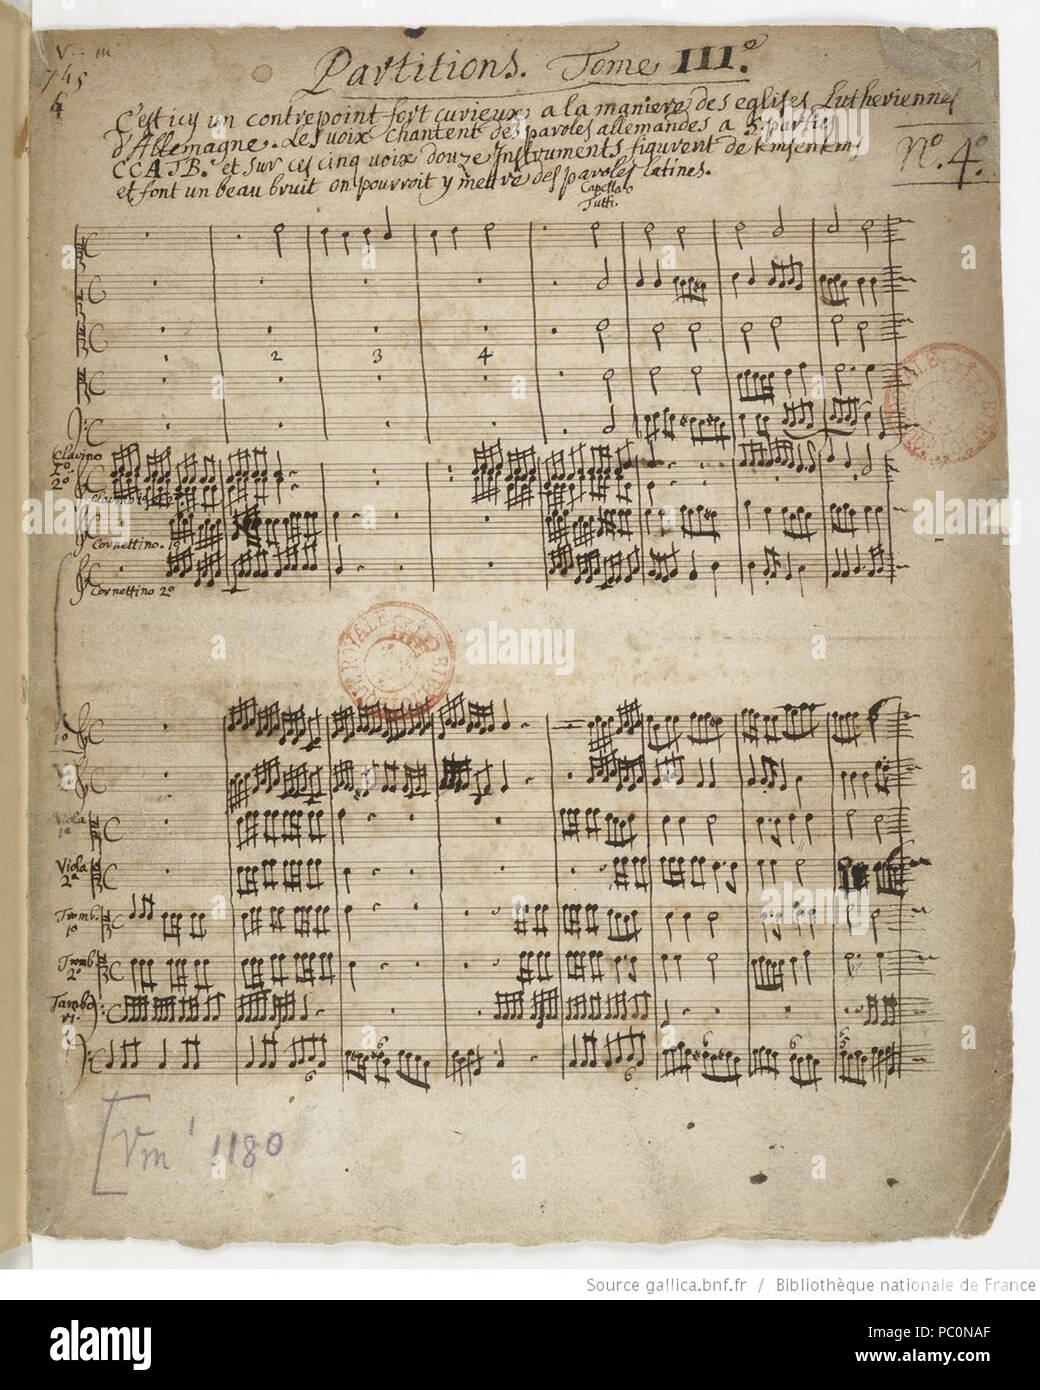 V. m
745
4
1
Partitions. Tome III.e
C'est icy un contrepoint fort curieux, a la maniere des eglises Lutheriennes
d'Allemagne. Les voix chantent des paroles allemandes a 5. parties
CCATB. et sur ces cinq voix douze Instruments figurent de tems en tems
et font un beau bruit on pourroit y mettre des paroles latines.
No. 4o.
Capella
Tutti.
2 3 4
Clarino
1o.
2o
Cornettino. 1o
Cornettino 2o
1o
Viola
1a
Viola
2a
Tromb.
1o
Tromb.
2o
Tambu
ri.
6 6 6 6 6 5
[Vm1 1180
BIBLIOTHEQUE ROYALE
alamy
alamy
alamy
Source gallica.bnf.fr / Bibliothèque nationale de France
alamy
Image ID: PC0NAF
www.alamy.com